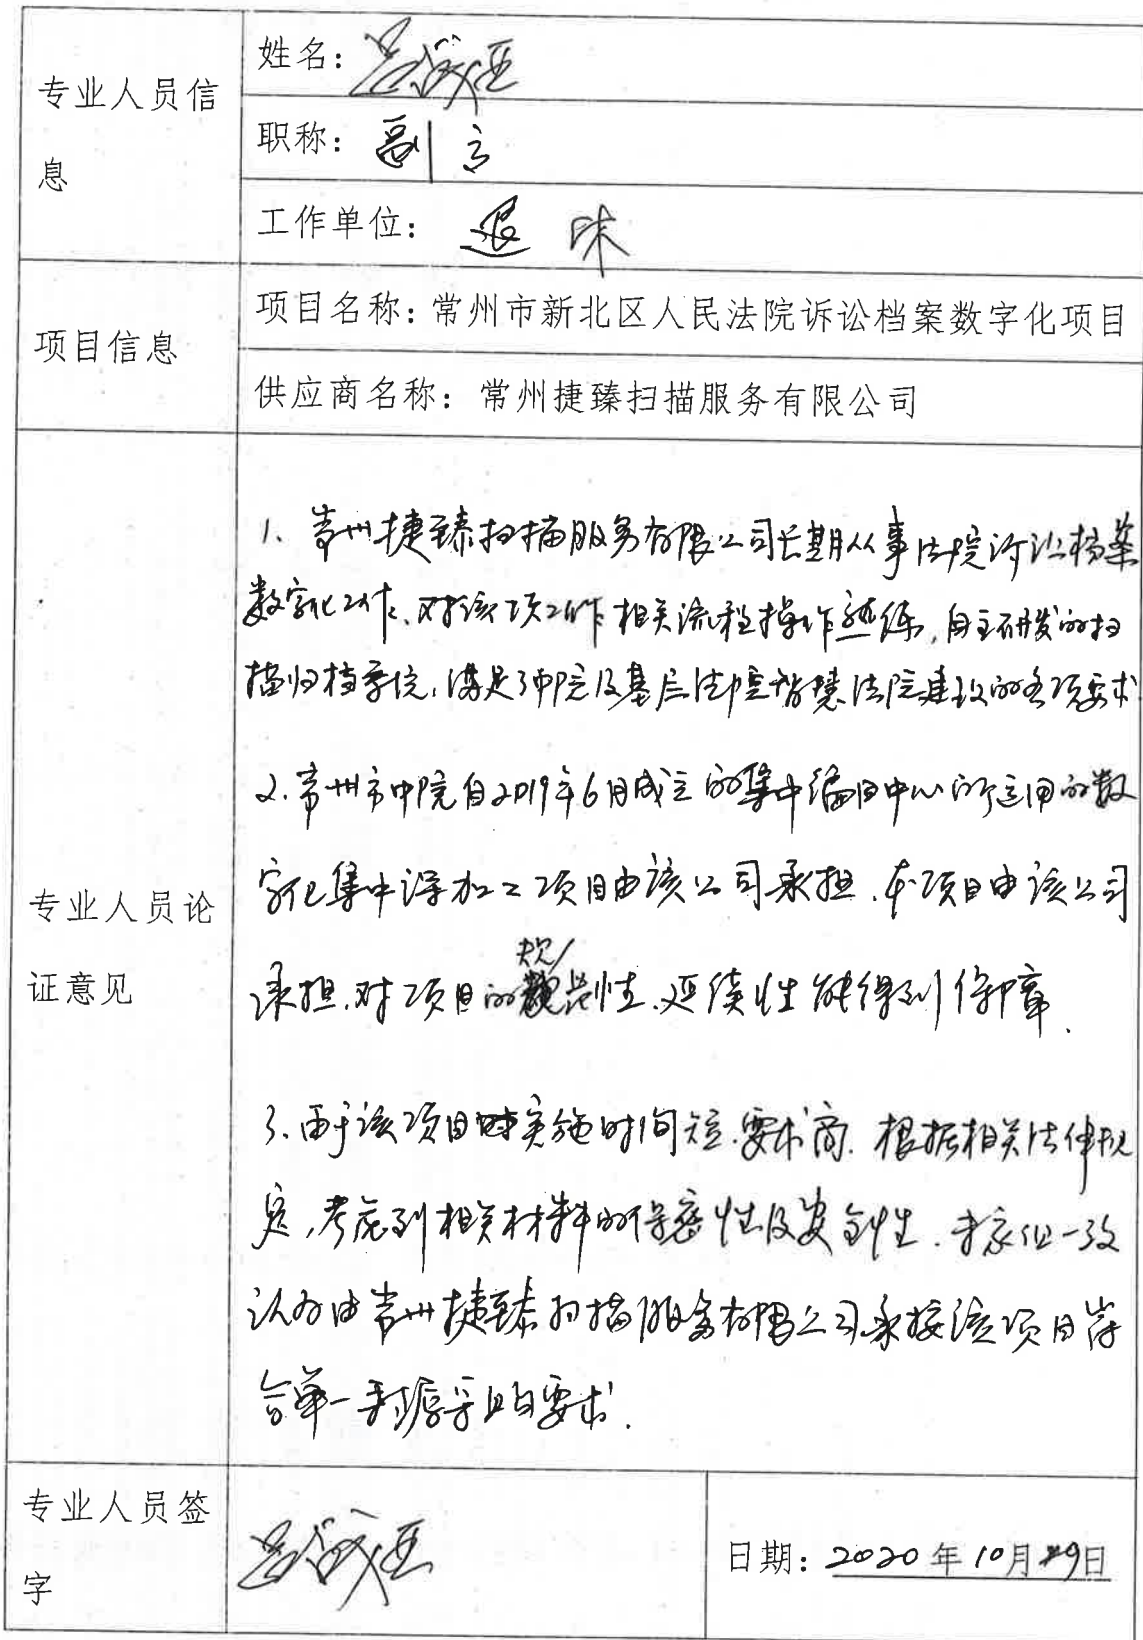 专业人员信
息
姓名：
职称：副高
工作单位：退休
项目信息
项目名称：常州市新北区人民法院诉讼档案数字化项目
供应商名称：常州捷臻扫描服务有限公司
专业人员论
证意见
1、常州捷臻扫描服务有限公司长期从事法院诉讼档案
数字化工作、对该项工作相关流程操作熟练，自主研发的扫
描归档系统，满足了中院及基层法院智慧法院建设的各项要求
2、常州市中院自2019年6月成立的集中编目中心所运用的数
字化集中深加工项目由该公司承担，本项目由该公司
承担，对项目的规范性、延续性能得到保障.
3、由于该项目实施时间短、要求高. 根据相关法律规
定，考虑到相关材料的保密性及安全性，专家组一致
认为由常州捷臻扫描服务有限公司承接该项目符
合单一来源采购要求.
专业人员签
字
日期：2020年10月29日